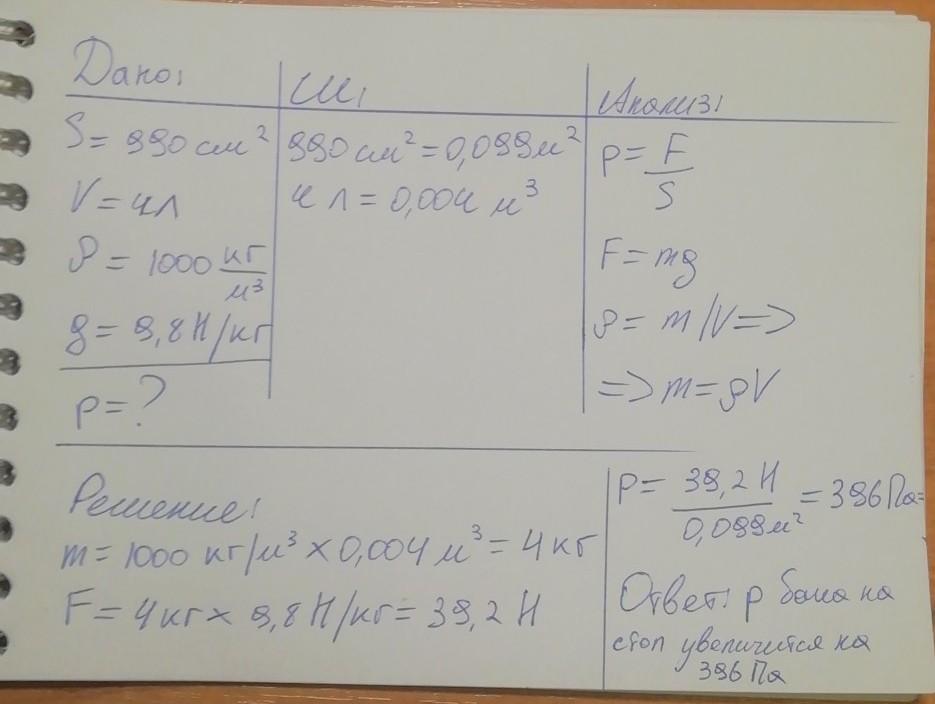 Дано:
S = 990 см²
V = 4л
ρ = 1000 кг/м³
g = 9,8 Н/кг
p = ?
СИ:
990 см² = 0,099 м²
4 л = 0,004 м³
Анализ:
p = F/S
F = mg
ρ = m/V =>
=> m = ρV
Решение:
m = 1000 кг/м³ × 0,004 м³ = 4 кг
F = 4 кг × 9,8 Н/кг = 39,2 Н
P = 39,2 Н/0,099 м² = 396 Па
Ответ: p бака на
стол увеличится на
396 Па